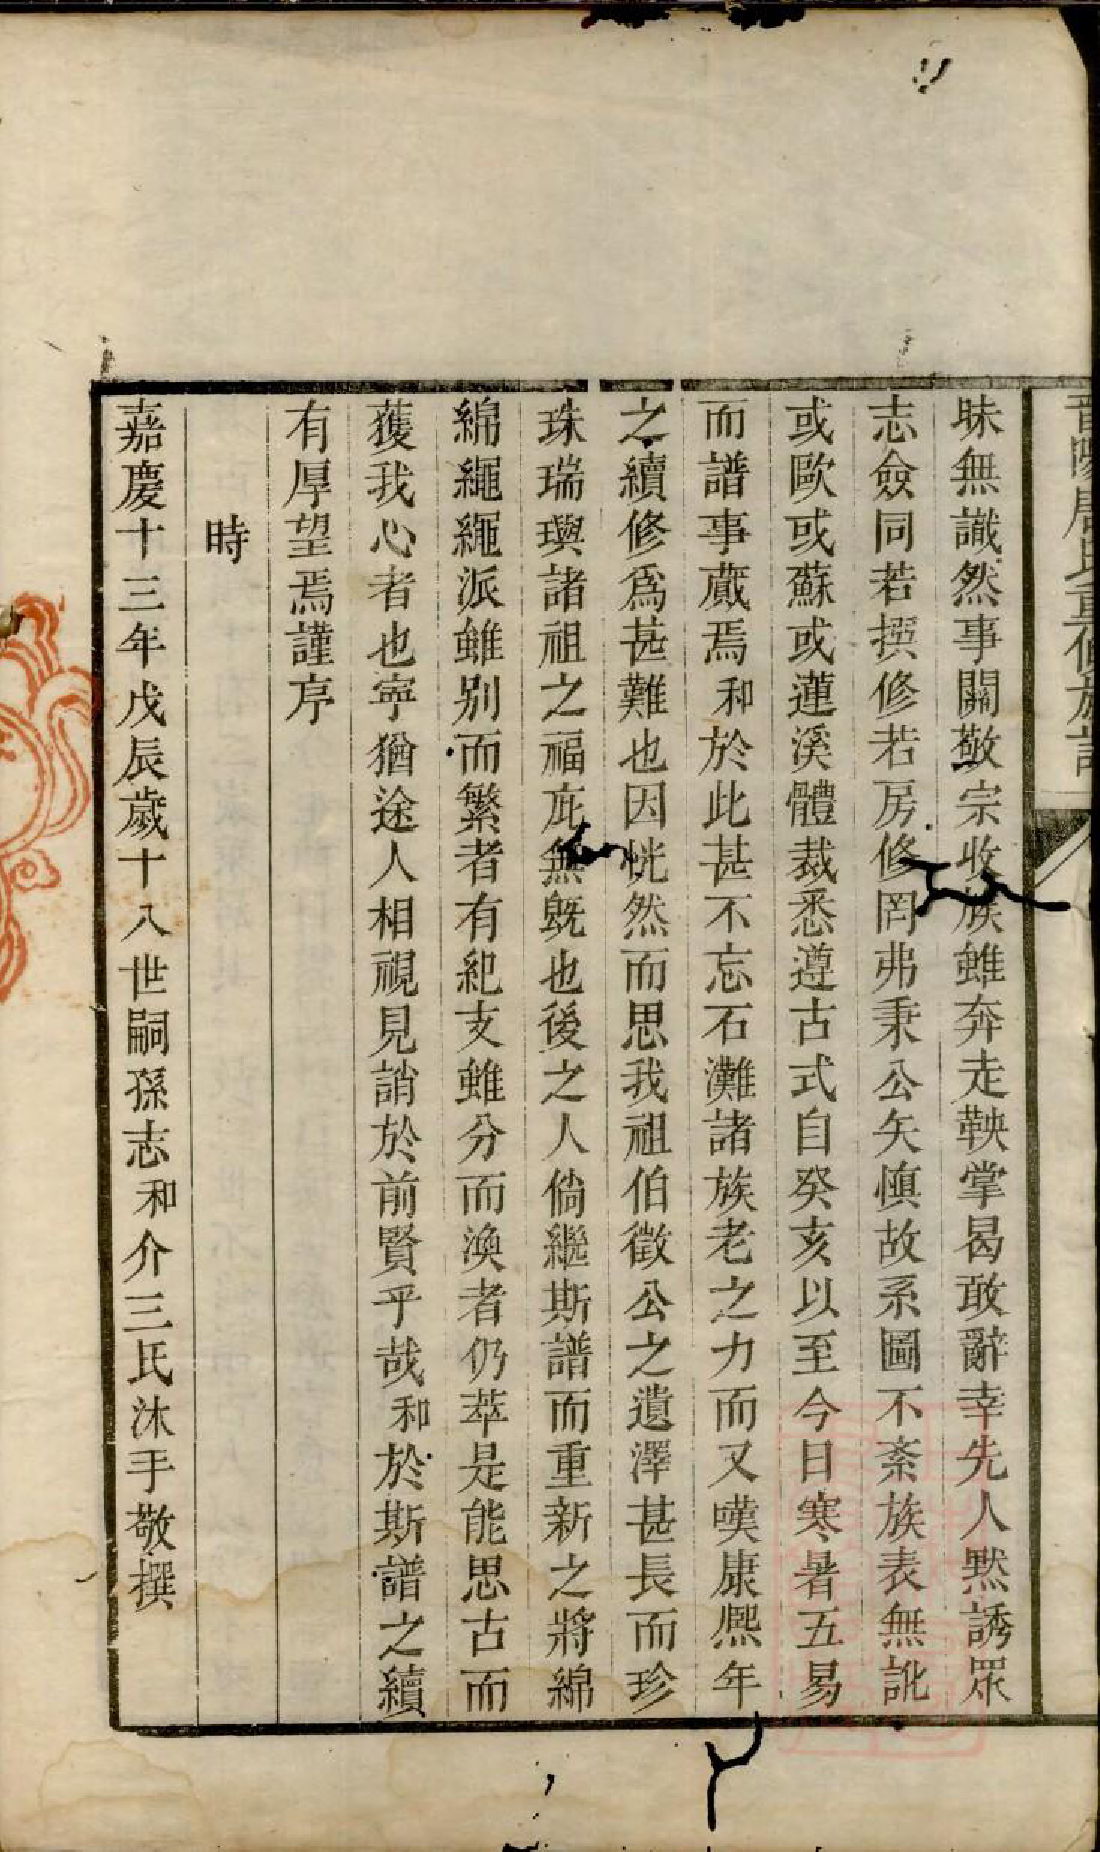 昧無識然事關敬宗收族雖奔走鞅掌曷敢辭幸先人黙誘眾
志僉同若撰修若房修罔弗秉公矢慎故系圖不紊族表無訛
或歐或蘇或蓮溪體裁悉遵古式自癸亥以至今日寒暑五易
而譜事蕆焉和於此甚不忘石灘諸族老之力而又嘆康熈年
之續修爲甚難也因恍然而思我祖伯徵公之遺澤甚長而珍
珠瑞璵諸祖之福庇無旣也後之人倘繼斯譜而重新之將綿
綿繩繩派雖别而繁者有紀支雖分而渙者仍萃是能思古而
獲我心者也寕猶途人相視見誚於前賢乎哉和於斯譜之續
有厚望焉謹序
時
嘉慶十三年戊辰歲十八世嗣孫志和介三氏沐手敬撰